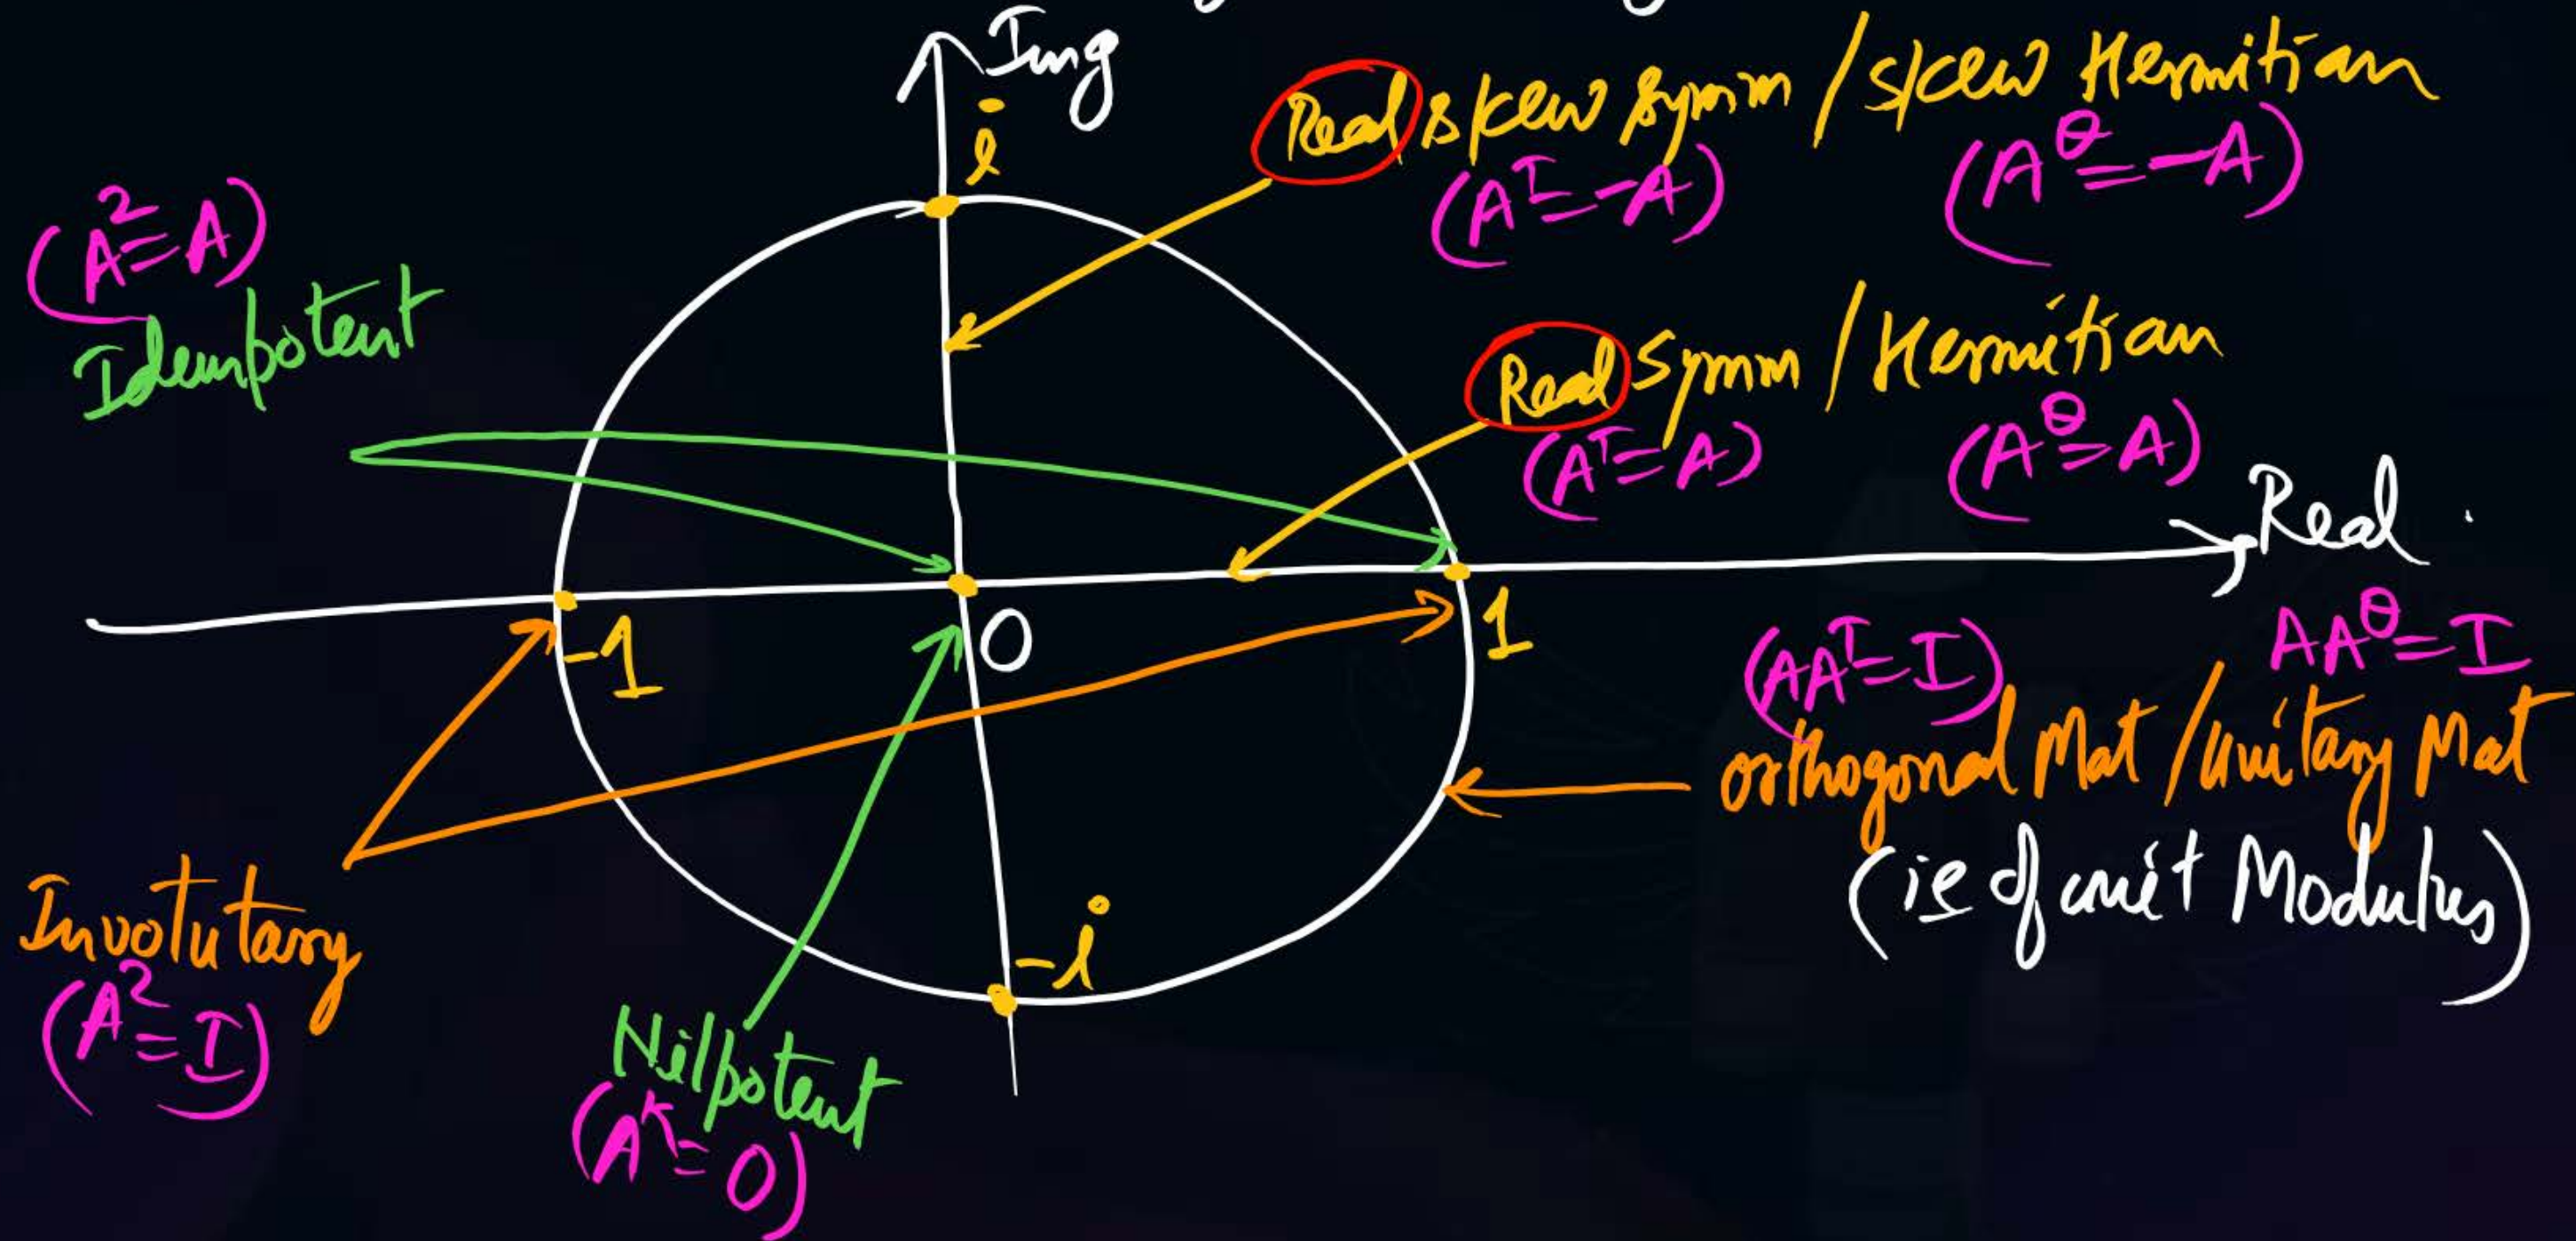 Img
i
Real skew symm / skew Hermitian
(A^T = -A) (A^θ = -A)
(A^2 = A)
Idempotent
Real Symm / Hermitian
(A^T = A) (A^θ = A)
Real
-1
0
1
(AA^T = I) AA^θ = I
orthogonal Mat / unitary Mat
(ie of unit Modulus)
Involutary
(A^2 = I)
-i
Nilpotent
(A^K = 0)